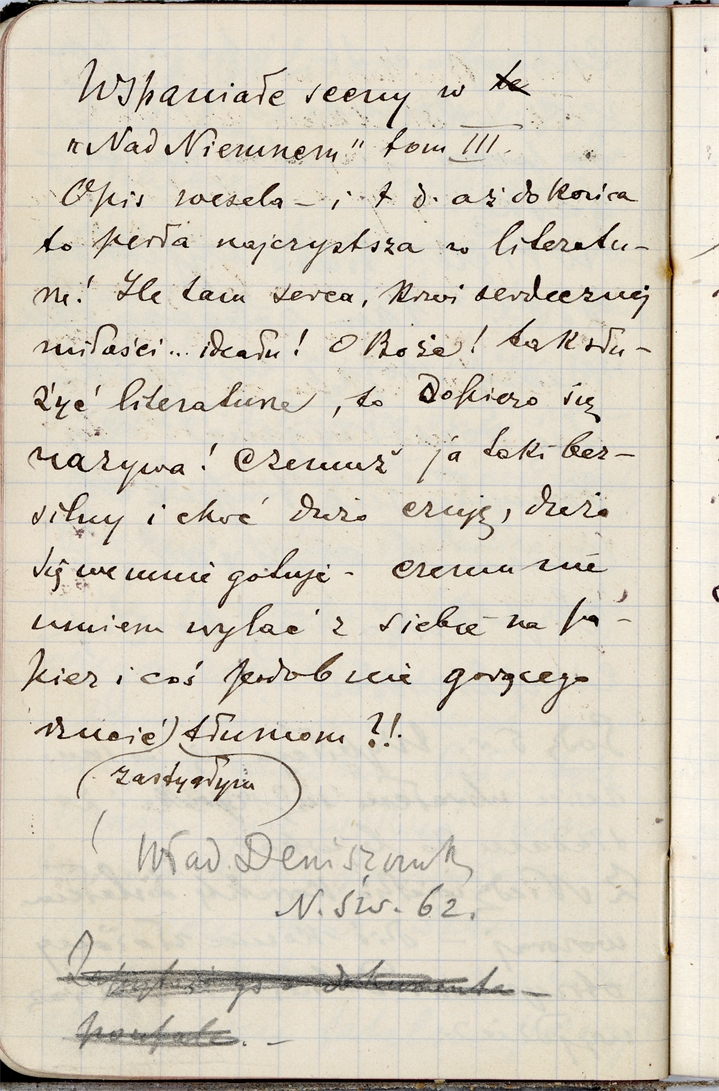 Wspaniałe sceny w te
"Nad Niemnem" tom III.
Opis wesela – i t d. aż do końca
to perła najczystsza w literatu–
rze! Ile tam serca, krwi serdecznej
miłości... ideału! O Boże! tak słu–
żyć literaturze, to dopiero się
nazywa! Czemuż ja taki bez–
silny i choć dużo czuję, dużo
się we mnie gotuje – czemu nie
umiem wylać z siebie na pa–
pier i coś podobnie gorącego
rzucić) tłumom ?!.
(zastygłym)
Wład Deniszczuk
N. Św. 62.
dokumenta –